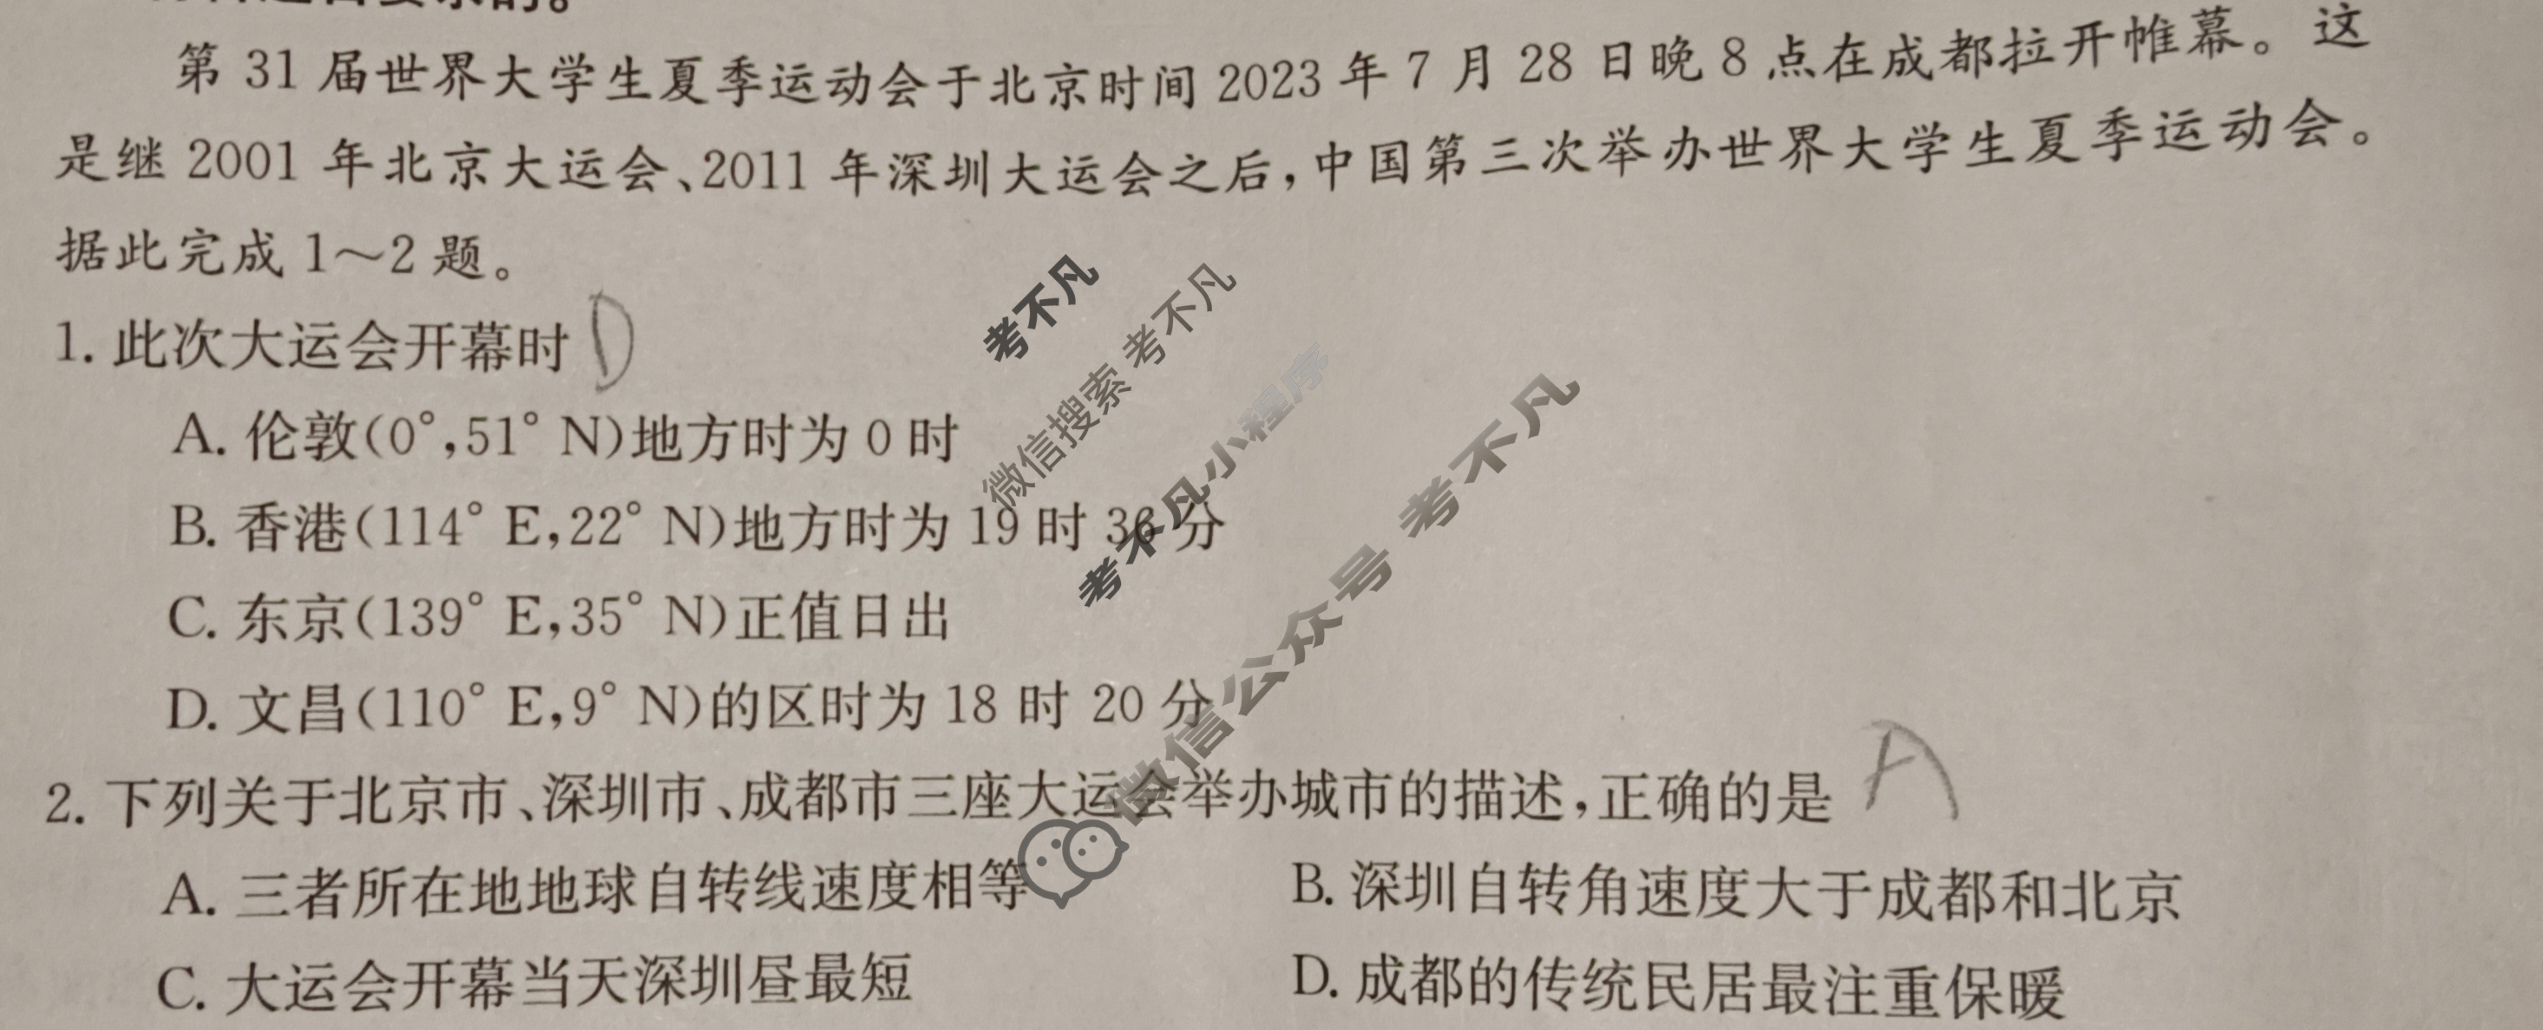 第 31 届世界大学生夏季运动会于北京时间 2023 年 7 月 28 日晚 8 点在成都拉开帷幕。这
是继 2001 年北京大运会、2011 年深圳大运会之后,中国第三次举办世界大学生夏季运动会。
据此完成 1～2 题。
1. 此次大运会开幕时 D
A. 伦敦(0°,51° N)地方时为 0 时
B. 香港(114° E,22° N)地方时为 19 时 36 分
C. 东京(139° E,35° N)正值日出
D. 文昌(110° E,9° N)的区时为 18 时 20 分
2. 下列关于北京市、深圳市、成都市三座大运会举办城市的描述,正确的是 A
A. 三者所在地地球自转线速度相等
B. 深圳自转角速度大于成都和北京
C. 大运会开幕当天深圳昼最短
D. 成都的传统民居最注重保暖
考不凡
微信搜索 考不凡
考不凡小程序
微信公众号 考不凡